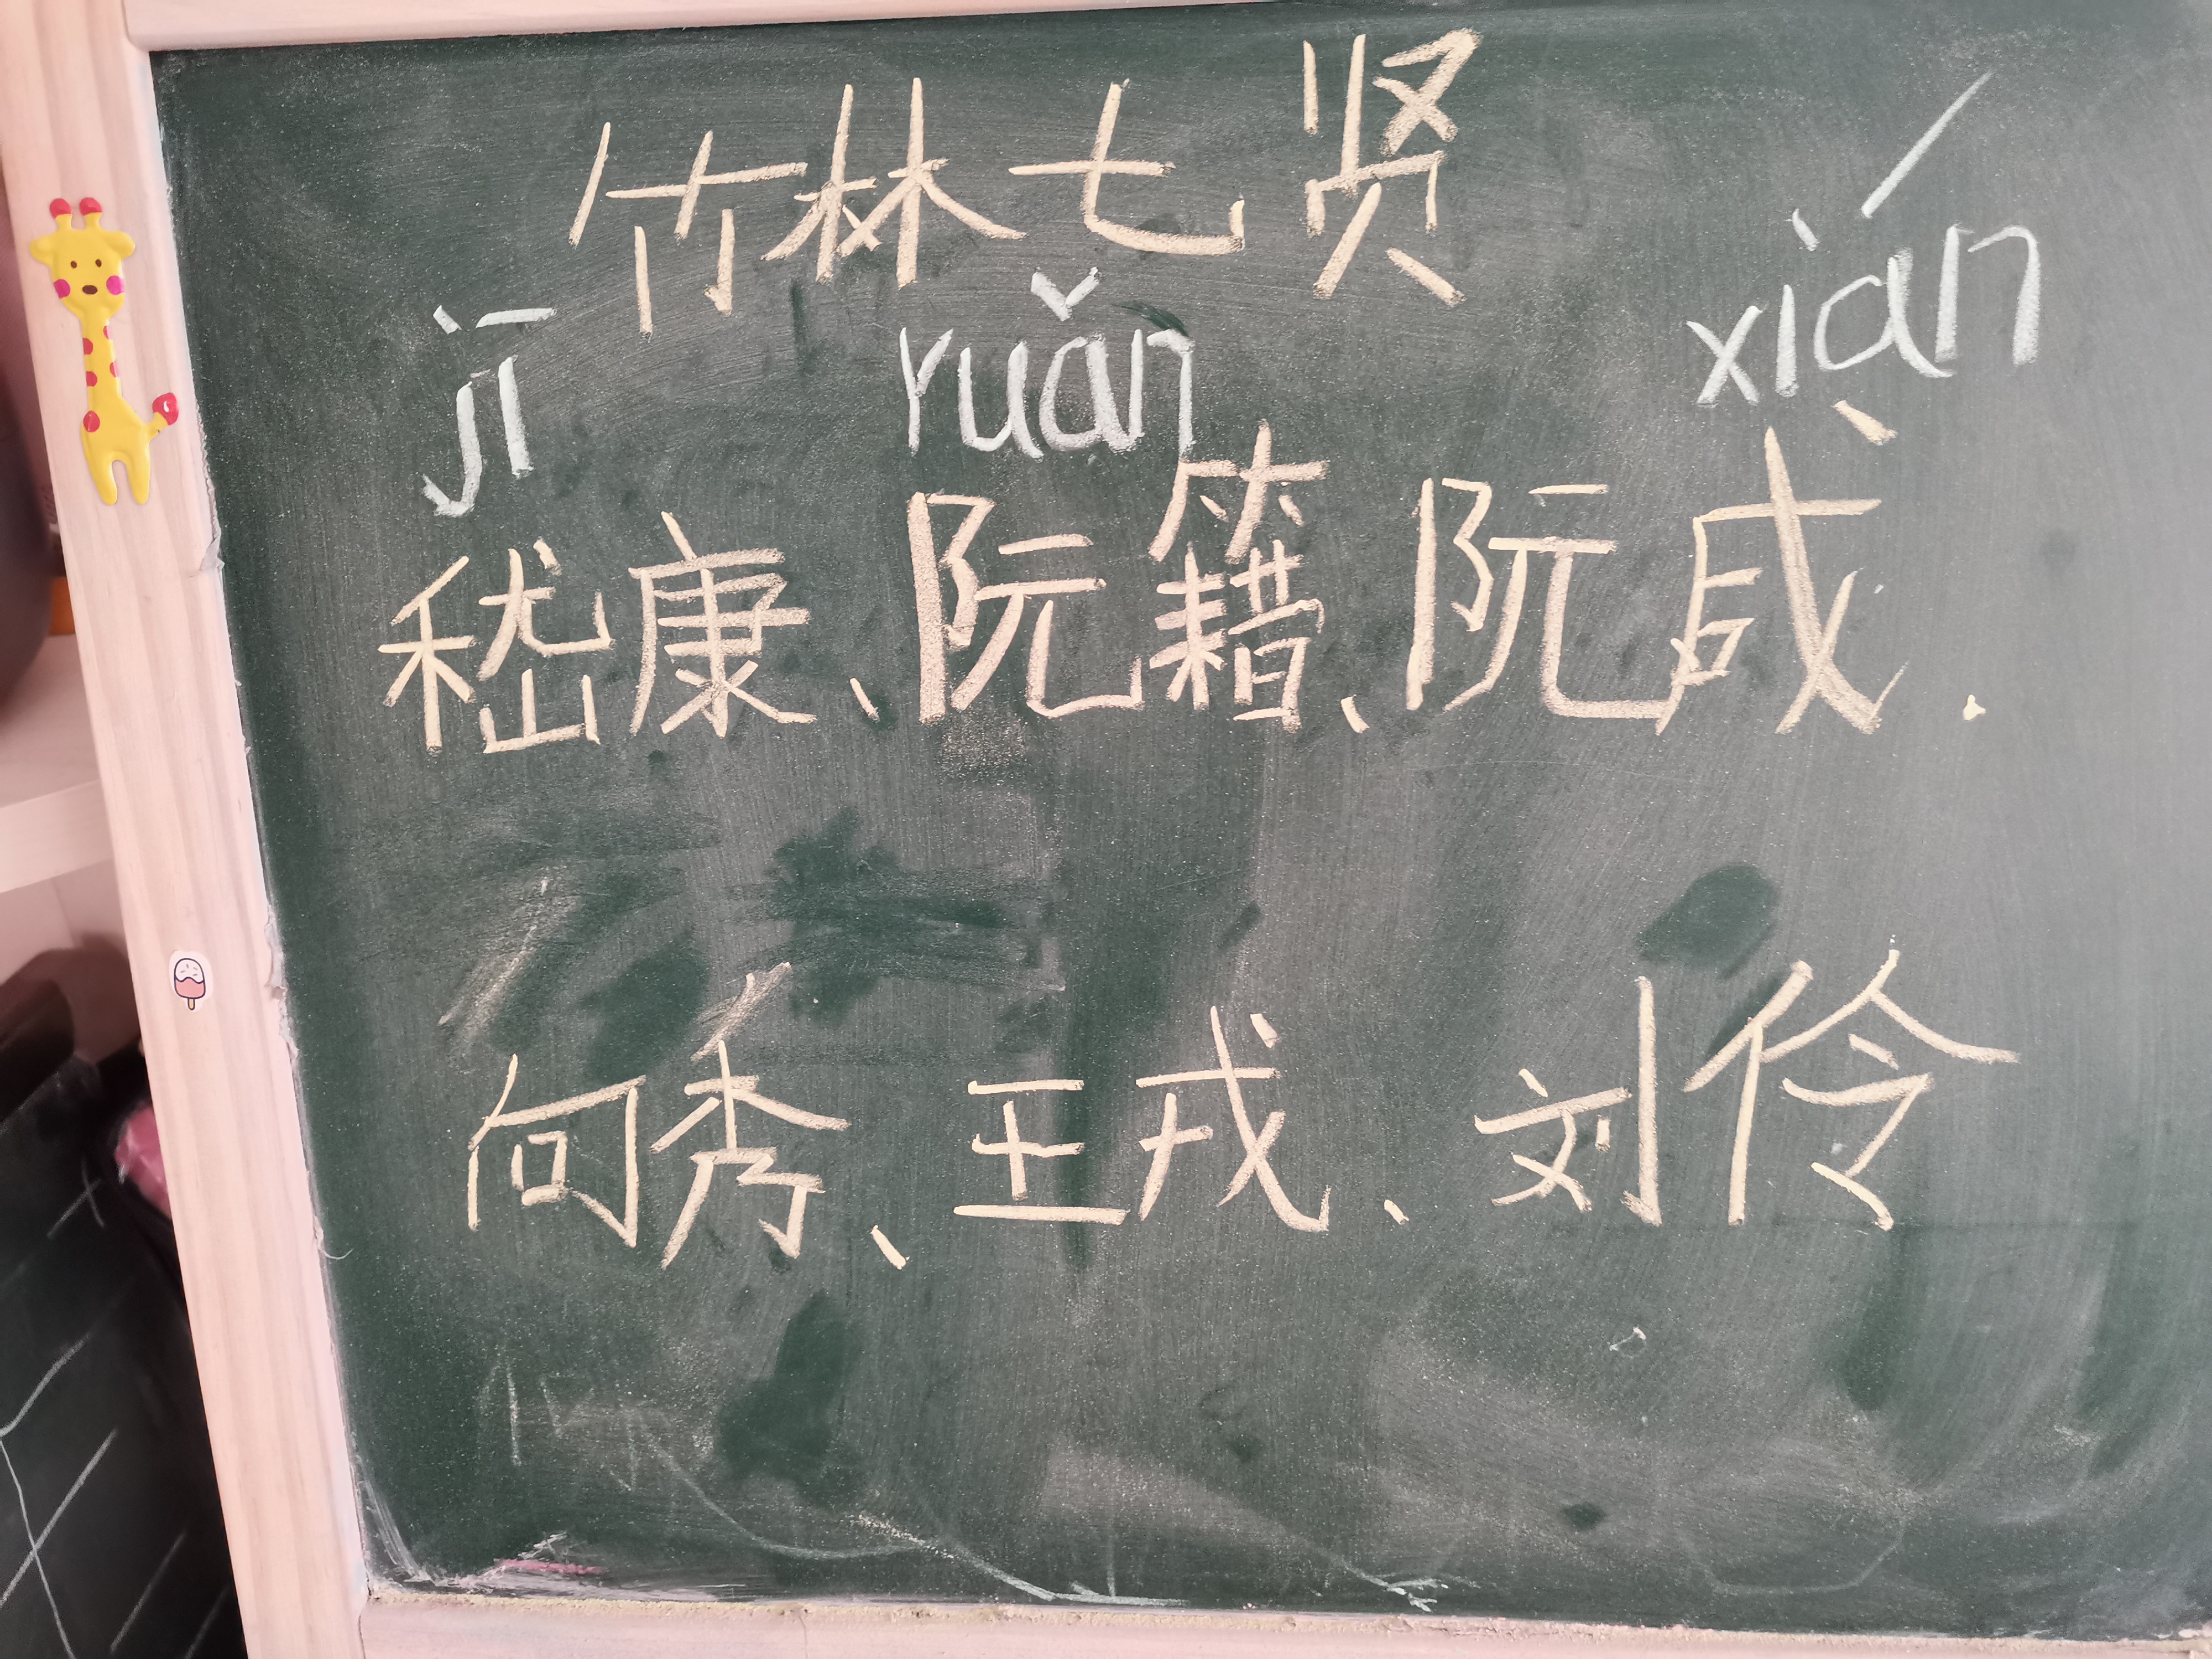 竹林七贤
jī ruǎn xián
嵇康、阮籍、阮咸.
向秀、王戎、刘伶